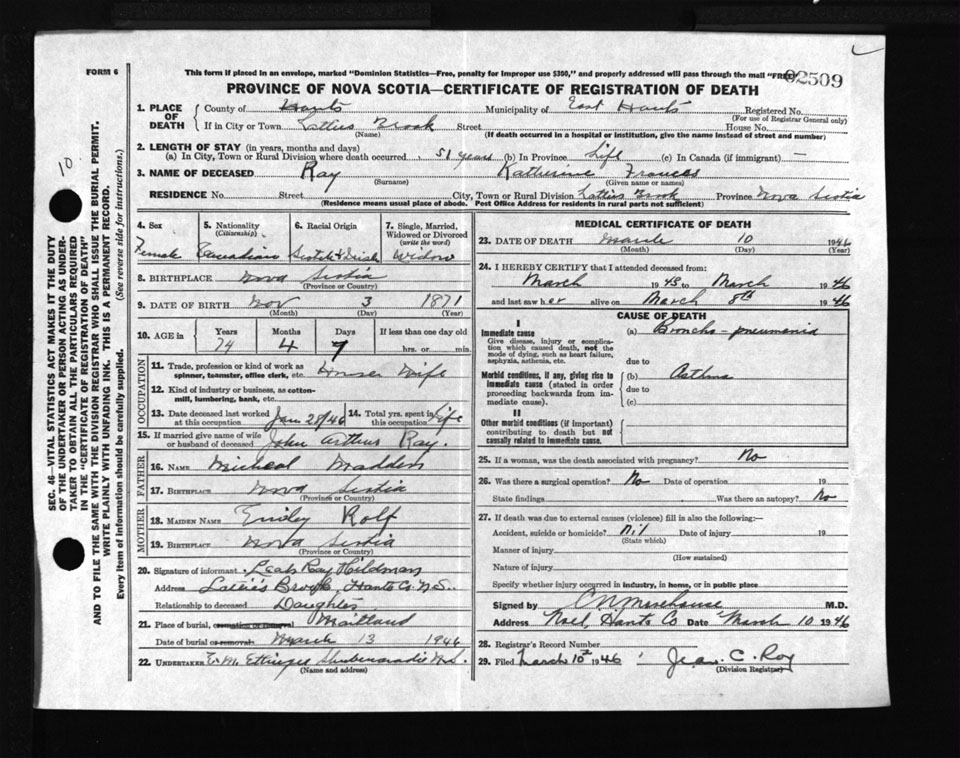 FORM 6
This form if placed in an envelope, marked "Dominion Statistics—Free, penalty for improper use $300," and properly addressed will pass through the mail "FREE"
02509
PROVINCE OF NOVA SCOTIA—CERTIFICATE OF REGISTRATION OF DEATH
1. PLACE OF DEATH
County of Hants Municipality of East Hants Registered No.
(For use of Registrar General only)
If in City or Town Latties Brook Street House No.
(Name) (If death occurred in a hospital or institution, give the name instead of street and number)
2. LENGTH OF STAY (in years, months and days)
(a) In City, Town or Rural Division where death occurred 51 years (b) In Province Life (c) In Canada (if immigrant) —
3. NAME OF DECEASED Ray Katherine Frances
(Surname) (Given name or names)
RESIDENCE No. Street City, Town or Rural Division Latties Brook Province Nova Scotia
(Residence means usual place of abode. Post Office Address for residents in rural parts not sufficient)
4. Sex
Female
5. Nationality
(Citizenship)
Canadian
6. Racial Origin
Scotch & Irish
7. Single, Married, Widowed or Divorced
(write the word)
Widow
8. BIRTHPLACE Nova Scotia
(Province or Country)
9. DATE OF BIRTH Nov 3 1871
(Month) (Day) (Year)
10. AGE in Years Months Days If less than one day old
74 4 7 hrs. or min.
OCCUPATION
11. Trade, profession or kind of work as House Wife
spinner, teamster, office clerk, etc.
12. Kind of industry or business, as cotton-
mill, lumbering, bank, etc.
13. Date deceased last worked at this occupation Jan 28/46
14. Total yrs. spent in this occupation Life
15. If married give name of wife or husband of deceased John Arthur Ray.
FATHER
16. NAME Micheal Madden
17. BIRTHPLACE Nova Scotia
(Province or Country)
MOTHER
18. MAIDEN NAME Emily Rolf
19. BIRTHPLACE Nova Scotia
(Province or Country)
20. Signature of informant Leah Ray Hildman
Address Latties Brook, Hants Co. N.S.
Relationship to deceased Daughter
21. Place of burial, cremation or removal Maitland
Date of burial or removal March 13 1946
22. UNDERTAKER E. M. Ettinger Shubenacadie N.S.
(Name and address)
MEDICAL CERTIFICATE OF DEATH
23. DATE OF DEATH March 10 1946
(Month) (Day) (Year)
24. I HEREBY CERTIFY that I attended deceased from:
March 1943 to March 1946
and last saw her alive on March 8th 1946
CAUSE OF DEATH
I
Immediate cause (a) Broncho-pneumonia
Give disease, injury or complication which caused death, not the mode of dying, such as heart failure, asphyxia, asthenia, etc.
due to
Morbid conditions, if any, giving rise to immediate cause (stated in order proceeding backwards from immediate cause).
(b) Asthma
due to
(c)
II
Other morbid conditions (if important) contributing to death but not causally related to immediate cause.
25. If a woman, was the death associated with pregnancy? No
26. Was there a surgical operation? No Date of operation 19
State findings Was there an autopsy? No
27. If death was due to external causes (violence) fill in also the following:—
Accident, suicide or homicide? Nil Date of injury 19
(State which)
Manner of injury
(How sustained)
Nature of injury
Specify whether injury occurred in industry, in home, or in public place
Signed by C N Morehouse M.D.
Address Noel, Hants Co Date March 10 1946
28. Registrar's Record Number
29. Filed March 10th 1946 Jean C. Roy
(Division Registrar)
10
SEC. 46—VITAL STATISTICS ACT MAKES IT THE DUTY
OF THE UNDERTAKER OR PERSON ACTING AS UNDER-
TAKER TO OBTAIN ALL THE PARTICULARS REQUIRED
IN THE "CERTIFICATE OF REGISTRATION OF DEATH"
AND TO FILE THE SAME WITH THE DIVISION REGISTRAR WHO SHALL ISSUE THE BURIAL PERMIT.
WRITE PLAINLY WITH UNFADING INK. THIS IS A PERMANENT RECORD.
Every item of information should be carefully supplied. (See reverse side for instructions.)